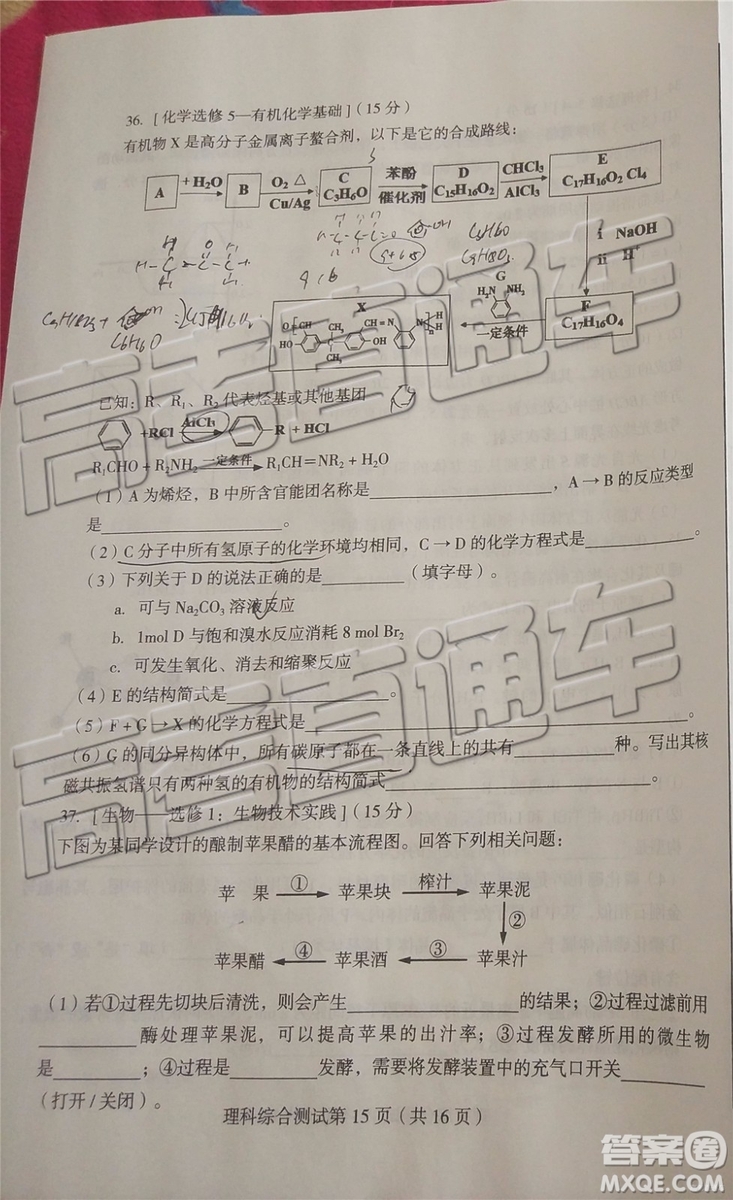 36. [化学选修5—有机化学基础](15分)
有机物X是高分子金属离子螯合剂，以下是它的合成路线：
A +H₂O B O₂ △ Cu/Ag C C₃H₆O 苯酚 催化剂 D C₁₅H₁₆O₂ CHCl₃ AlCl₃ E C₁₇H₁₆O₂Cl₄
i NaOH
ii H⁺
F C₁₇H₁₆O₄
G H₂N NH₂
一定条件
X O CH HO CH₃ CH₃ CH=N OH N H H n
C₃H₆O
C₆H₆O
已知：R、R₁、R₂代表烃基或其他基团
+RCl AlCl₃ R + HCl
R₁CHO + R₂NH₂ 一定条件 R₁CH=NR₂ + H₂O
(1) A为烯烃，B中所含官能团名称是________，A→B的反应类型
是________。
(2) C分子中所有氢原子的化学环境均相同，C→D的化学方程式是________。
(3) 下列关于D的说法正确的是________(填字母)。
a. 可与Na₂CO₃溶液反应
b. 1mol D与饱和溴水反应消耗8 mol Br₂
c. 可发生氧化、消去和缩聚反应
(4) E的结构简式是________。
(5) F+G→X的化学方程式是________。
(6) G的同分异构体中，所有碳原子都在一条直线上的共有________种。写出其核
磁共振氢谱只有两种氢的有机物的结构简式________。
37. [生物——选修1：生物技术实践](15分)
下图为某同学设计的酿制苹果醋的基本流程图。回答下列相关问题：
苹 果 ① 苹果块 榨汁 苹果泥
②
苹果醋 ④ 苹果酒 ③ 苹果汁
(1) 若①过程先切块后清洗，则会产生________的结果；②过程过滤前用
________酶处理苹果泥，可以提高苹果的出汁率；③过程发酵所用的微生物
是________；④过程是________发酵，需要将发酵装置中的充气口开关________
(打开/关闭)。
理科综合测试第15页(共16页)
高考直通车
高考直通车
答案圈
MXQE.COM